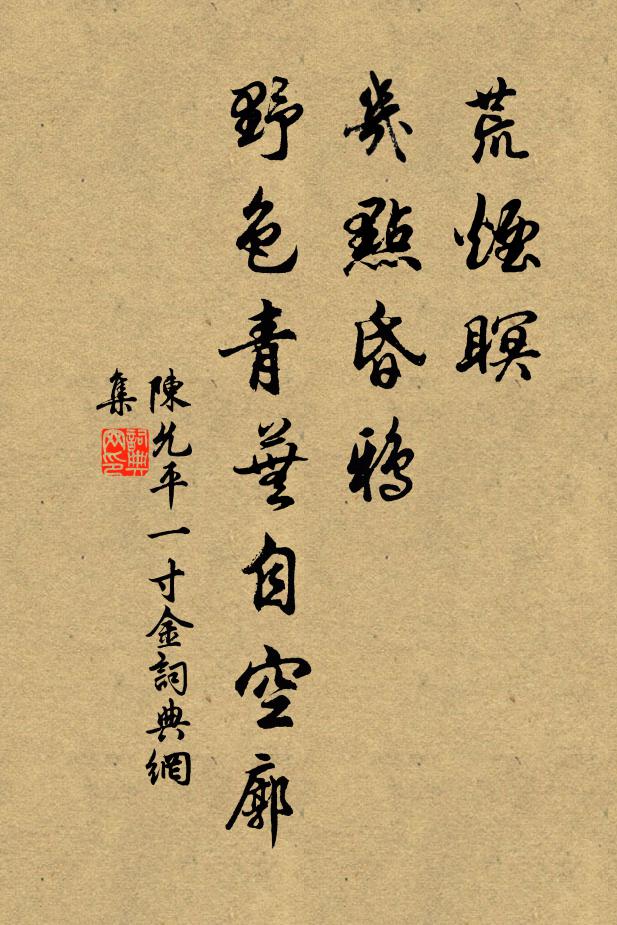 荒煙暝
幾點昏鴉
野色青蕪自空廓
陳允平一寸金詞典網
集
詞典網印